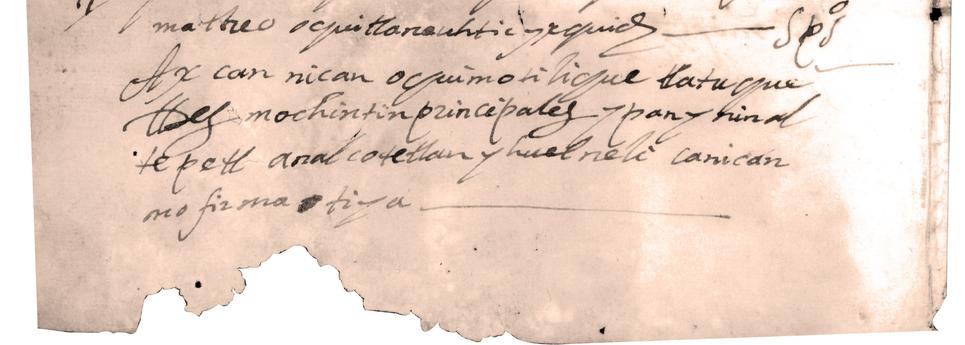 matheo oquitlaneuhtic yzquich — Spõs
Ax can nican oquimotilique tlatuque
tles mochintin principales ypan yhin al
tepetl analcotetlan yhuel neli ca nican
mofirma tiya